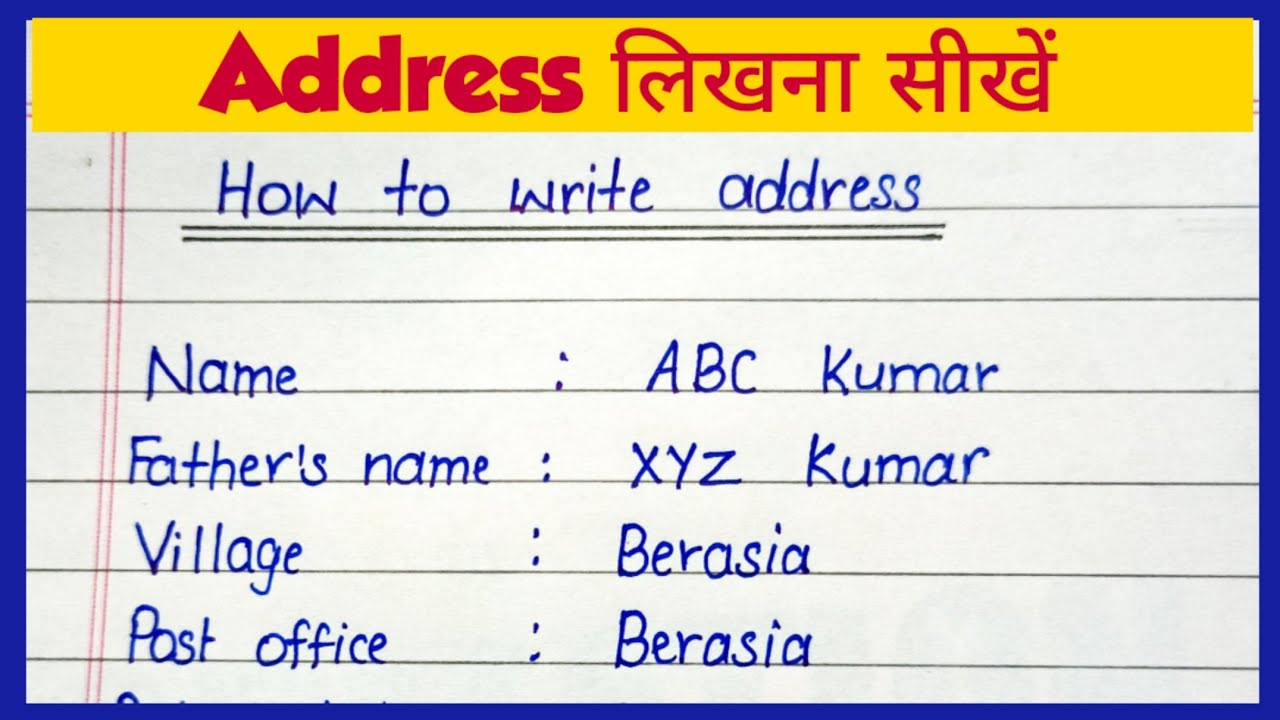 Address लिखना सीखें
How to write address
Name : ABC Kumar
Father's name : XYZ Kumar
Village : Berasia
Post office : Berasia